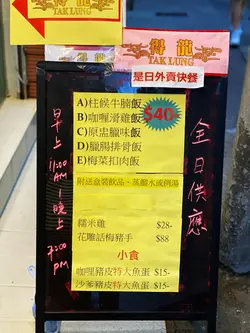 得龍
TAK LUNG
得龍
TAK LUNG
是日外賣快餐
A)柱候牛腩飯
B)咖喱滑雞飯
C)原盅臘味飯
D)臘腸排骨飯
E)梅菜扣肉飯
$40
附送盒裝飲品、蒸餾水或例湯
糯米雞 $28-
花雕話梅豬手 $88
小食
咖喱豬皮特大魚蛋 $15-
沙爹豬皮特大魚蛋 $15-
早上
11:00
AM
晚上
7:00
PM
全日供應